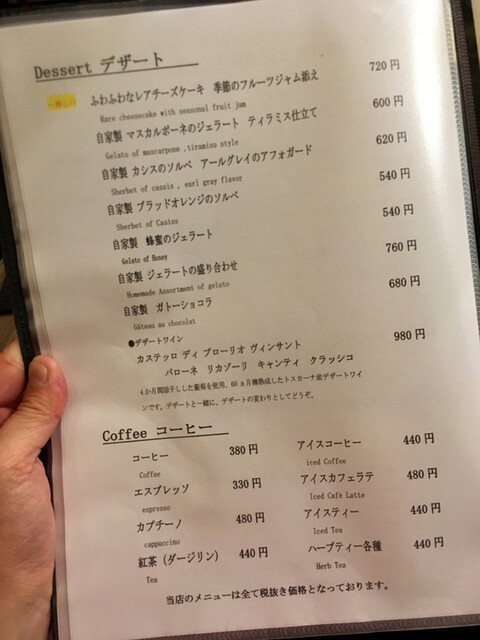 Dessert デザート
一押し!!
ふわふわなレアチーズケーキ 季節のフルーツジャム添え 720 円
Rare cheesecake with seasonal fruit jam
自家製 マスカルポーネのジェラート ティラミス仕立て 600 円
Gelato of mascarpone ,tiramisu style
自家製 カシスのソルベ アールグレイのアフォガード 620 円
Sherbet of cassis , earl gray flavor
自家製 ブラッドオレンジのソルベ 540 円
Sherbet of Casiss
自家製 蜂蜜のジェラート 540 円
Gelato of Honey
自家製 ジェラートの盛り合わせ 760 円
Homemade Assortment of gelato
自家製 ガトーショコラ 680 円
Gâteau au chocolat
●デザートワイン
カステッロ ディ ブローリオ ヴィンサント 980 円
バローネ リカゾーリ キャンティ クラッシコ
4か月間陰干しした葡萄を使用、60ヵ月樽熟成したトスカーナ産デザートワイ
ンです。デザートと一緒に、デザートの変わりとしてどうぞ。
Coffee コーヒー
コーヒー 380 円
Coffee
エスプレッソ 330 円
espresso
カプチーノ 480 円
cappaccino
紅茶（ダージリン） 440 円
Tea
アイスコーヒー 440 円
iced Coffee
アイスカフェラテ 480 円
Iced Café Latte
アイスティー 440 円
Iced Tea
ハーブティー各種 440 円
Herb Tea
当店のメニューは全て税抜き価格となっております。